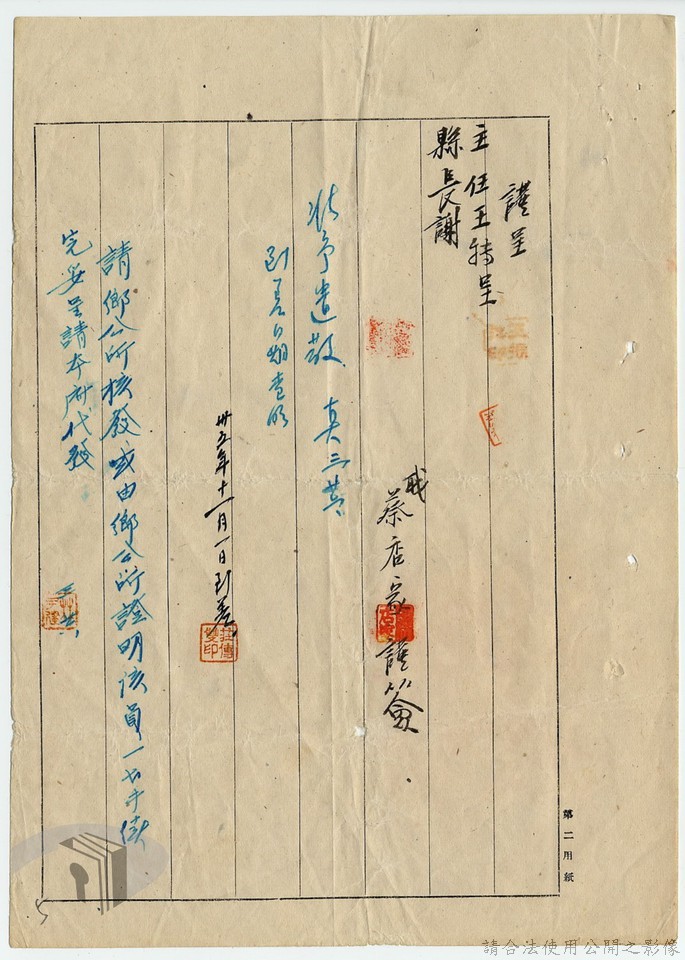 謹呈
主任王轉呈
縣長謝
職蔡店家謹簽
准予遣散
到差日期查明
卅五年十一月一日到差
莊傳雙印
請鄉公所核發或由鄉公所證明該員
完妥呈請本府代發
第二用紙
5
請合法使用公開之影像